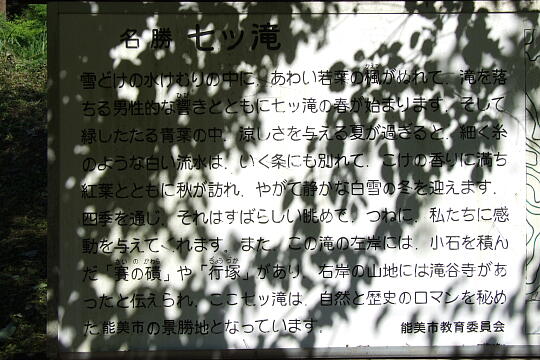 名勝 七ツ滝
雪どけの水けむりの中に、あわい若葉の楓がぬれて、滝を落
ちる男性的な響きとともに七ッ滝の春が始まります。そして
緑したたる青葉の中、涼しさを与える夏が過ぎると、細く糸
のような白い流水は、いく条にも別れて、こけの香りに満ち
紅葉とともに秋が訪れ、やがて静かな白雪の冬を迎えます。
四季を通じ、それはすばらしい眺めで、つねに、私たちに感
動を与えてくれます。また、この滝の左岸には、小石を積ん
だ「賽の磧」や「行塚」があり、右岸の山地には滝谷寺があ
ったと伝えられ、ここ七ッ滝は、自然と歴史のロマンを秘め
た能美市の景勝地となっています。
能美市教育委員会